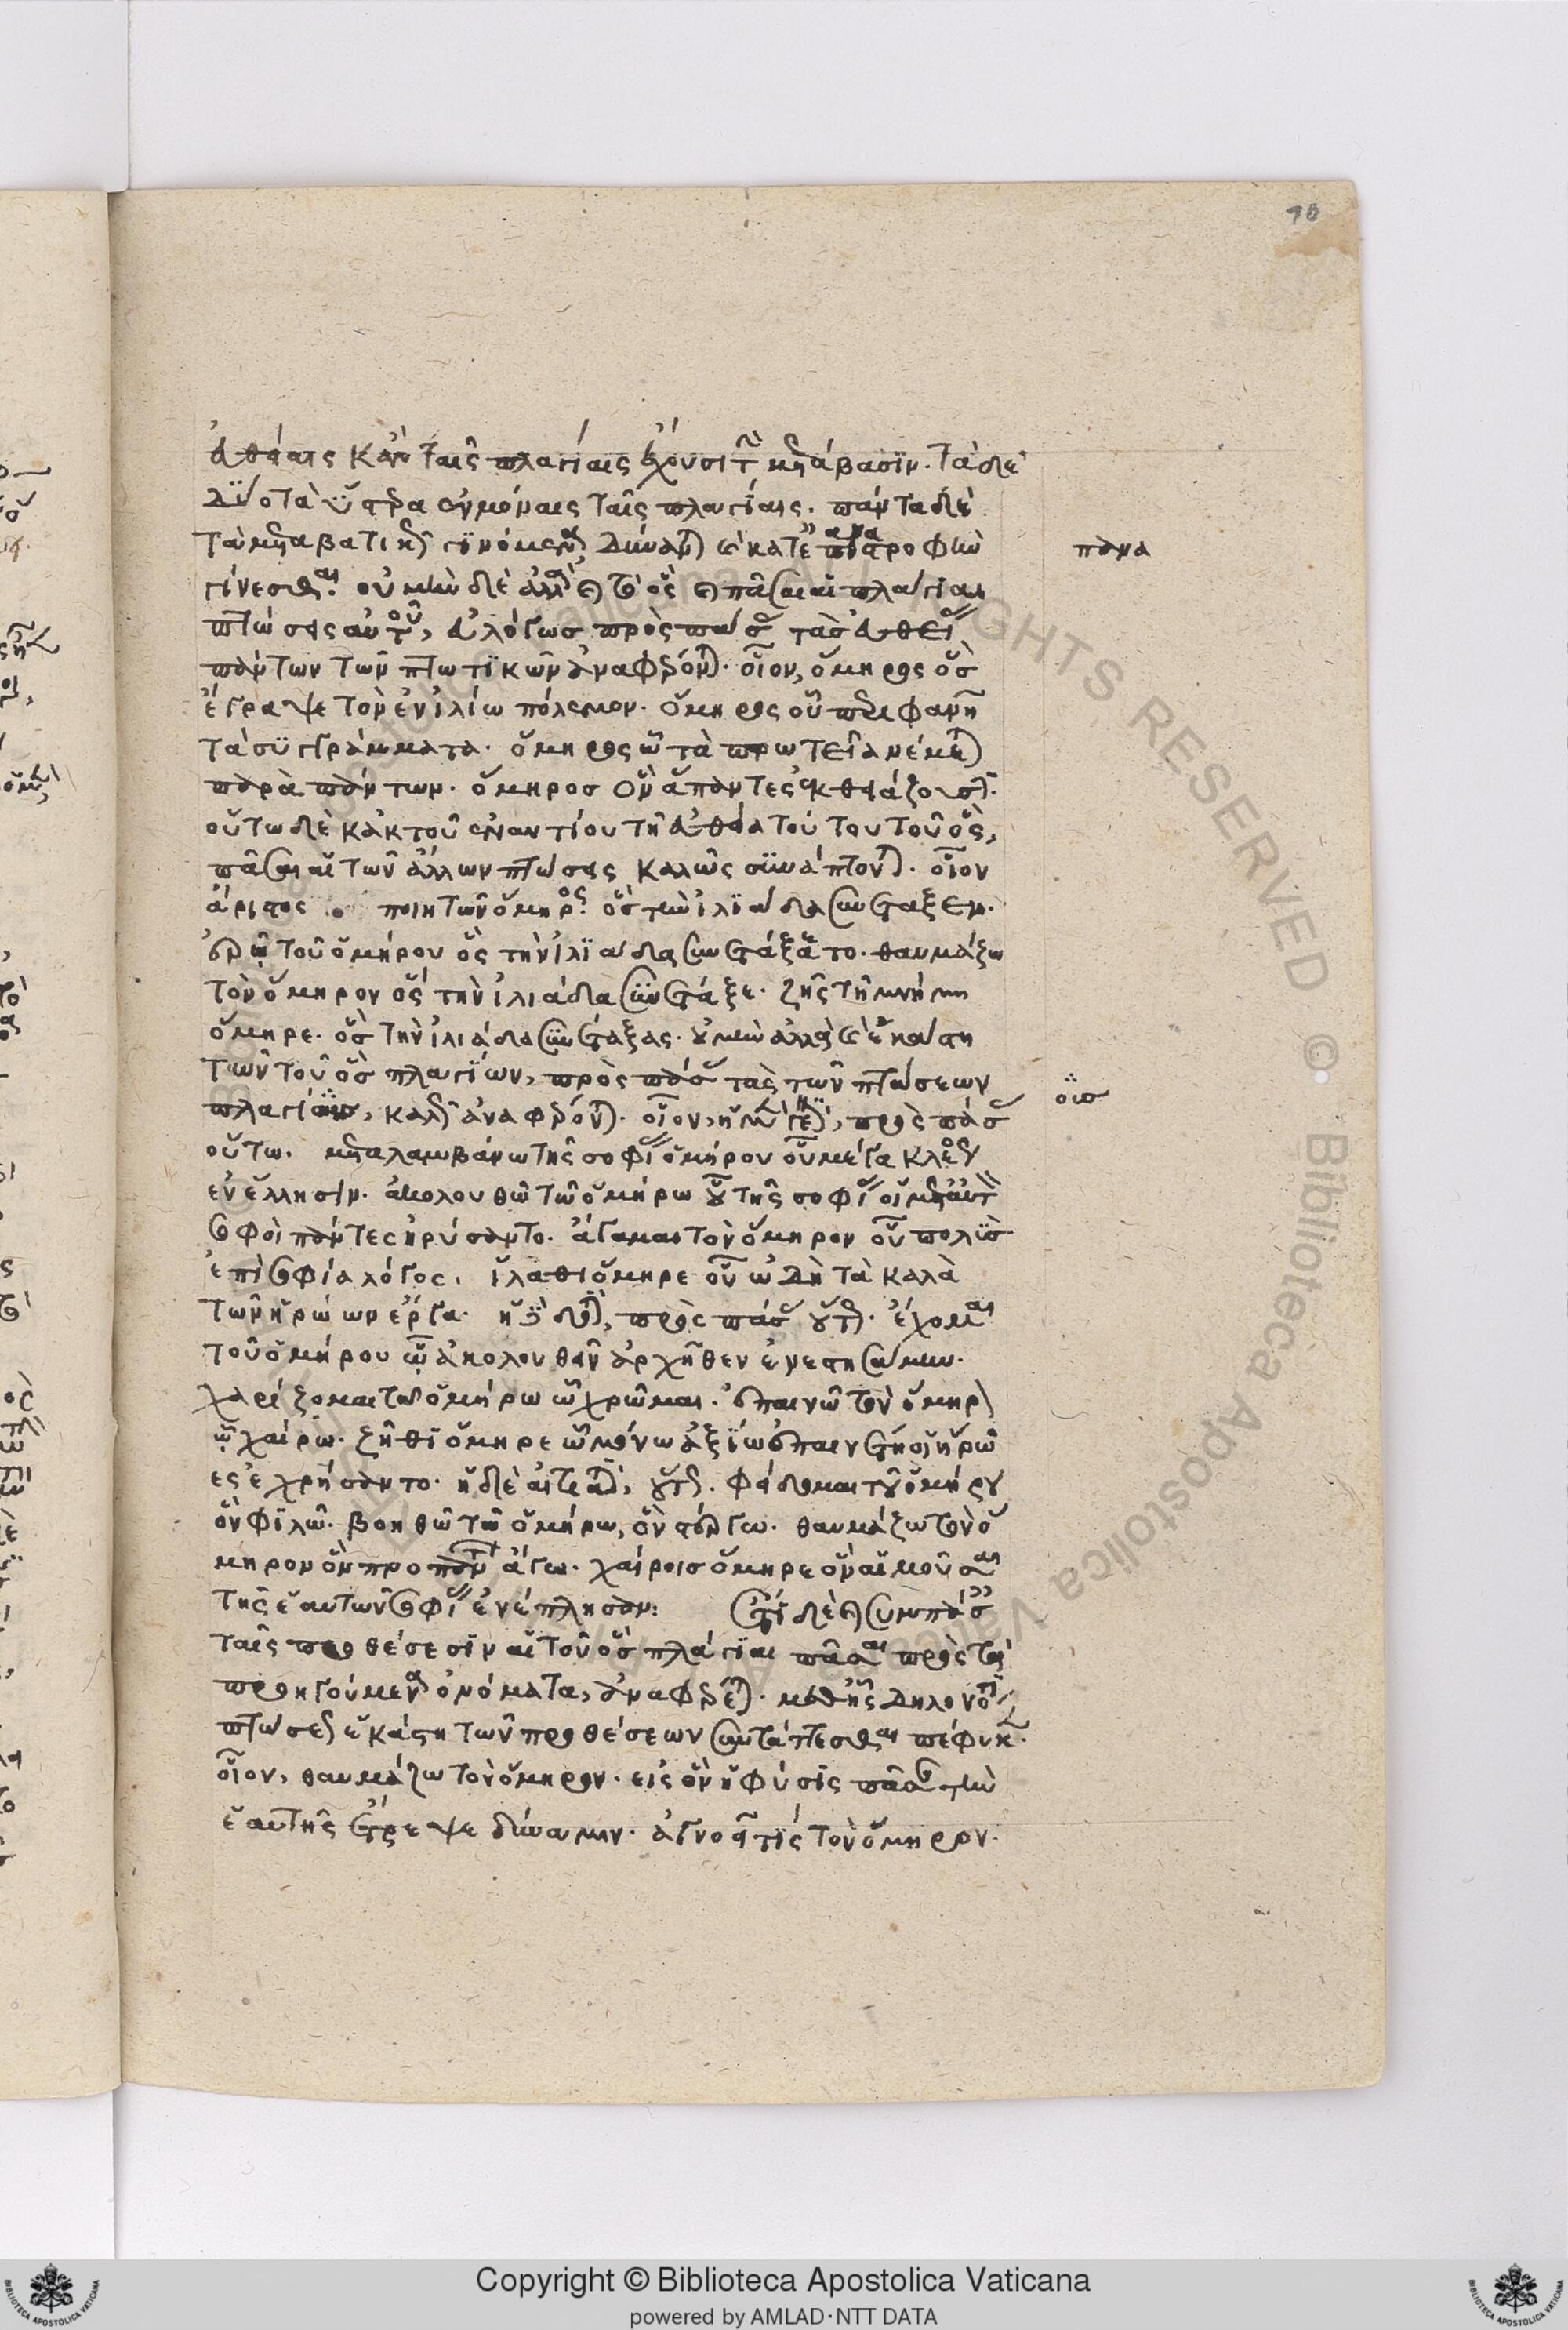 70
εὐθείαις κἀν ταῖς πλαγίαις ἔχουσι τὴν μετάβασιν. τὰ δὲ
δύο τὰ ὕστερα ἐν μόναις ταῖς πλαγίαις. πάντα δὲ
τὰ μεταβατικῶς γινόμενα, δύναται καὶ κατ'
πανα
γίνεσθαι. οὐ μὴν δὲ ἀλλὰ καὶ τὸ ὃς καὶ πᾶσαι αἱ πλάγιαι
πτώσεις αὐτοῦ, εὐλόγως πρὸς πάσας τὰς εὐθείας
πάντων τῶν πτωτικῶν ἀναφέρονται. οἷον, ὅμηρος ὃς
ἔγραψε τὸν ἐν ἰλίω πόλεμον. ὅμηρος οὗ περιφανῆ
τὰ συγγράμματα. ὅμηρος ὧ τὰ πρωτεῖα νέμεται
παρὰ πάντων. ὅμηρος ὃν ἅπαντες ἐκθειάζουσι.
οὕτω δὲ κἀκ τοῦ ἐναντίου τῆ εὐθεία τούτου τοῦ ὃς,
πᾶσαι αἱ τῶν ἄλλων πτώσεις καλῶς συνάπτονται. οἷον
ἄριστος ποιητῶν ὅμηρος ὃς τὴν ἰλιάδα συνέταξεν.
ἐρῶ τοῦ ὁμήρου ὃς τὴν ἰλιάδα συνετάξατο. θαυμάζω
τὸν ὅμηρον ὃς τὴν ἰλιάδα συνέταξε. ζῆς τῆ μνήμη
ὅμηρε. ὃς τὴν ἰλιάδα συνέταξας. οὐ μὴν ἀλλὰ καὶ ἑκάστη
τῶν τοῦ ὃς πλαγίων, πρὸς πάσας τὰς τῶν πτώσεων
πλαγίαις, καλῶς ἀναφέρονται. οἷον, ἡ μὲν γενικὴ, πρὸς πάσας
οις
οὕτω. μεταλαμβάνω τῆς σοφίας ὁμήρου οὗ μέγα κλέος
ἐν ἕλλησιν. ἀκολουθῶ τῶ ὁμήρω οὗ τῆς σοφίας οἱ μετ' αὐτὸν
σοφοὶ πάντες ἠρύσαντο. ἄγαμαι τὸν ὅμηρον οὗ πολὺς
ἐπὶ σοφία λόγος. ἵλαθι ὅμηρε οὗ ὠδὴ τὰ καλὰ
τῶν ἡρώων ἔργα. ἡ δὲ δοτικὴ, πρὸς πάσας οὕτως. ἔχομαι
τοῦ ὁμήρου ὧ ἀκολουθεῖν ἀρχῆθεν ἐνεστησάμην.
χαρίζομαι τῶ ὁμήρω ὧ χρῶμαι. ἐπαινῶ τὸν ὅμηρον
ὧ χαίρω. ζῆθι ὅμηρε ὧ μόνω ἀξίω ἐπαινέτη οἱ ἥρω
ες ἐχρήσαντο. ἡ δὲ αἰτιατικὴ, οὕτως. φείδομαι τοῦ ὁμήρου
ὃν φιλῶ. βοηθῶ τῶ ὁμήρω, ὃν στέργω. θαυμάζω τὸν ὅ
μηρον ὃν πρὸ παντὸς ἄγω. χαίροις ὅμηρε ὃν αἱ μοῦσαι
τῆς ἑαυτῶν σοφίας ἐνέπλησαν: ἔτι δὲ καὶ συμπάσαις
ταῖς προθέσεσιν αἱ τοῦ ὃς πλάγιαι πᾶσαι πρὸς τὰ
προηγούμενα ὀνόματα, ἀναφέρεται. μεθ' ἧς δηλονότι
πτώσεως ἑκάστη τῶν προθέσεων συντάττεσθαι πέφυκεν.
οἷον, θαυμάζω τὸν ὅμηρον. εἰς ὃν ἡ φύσις πᾶσαν τὴν
ἑαυτῆς ἔτρεψε δύναμιν. ἀγνοεῖ τίς τὸν ὅμηρον.
Copyright © Biblioteca Apostolica Vaticana
powered by AMLAD·NTT DATA